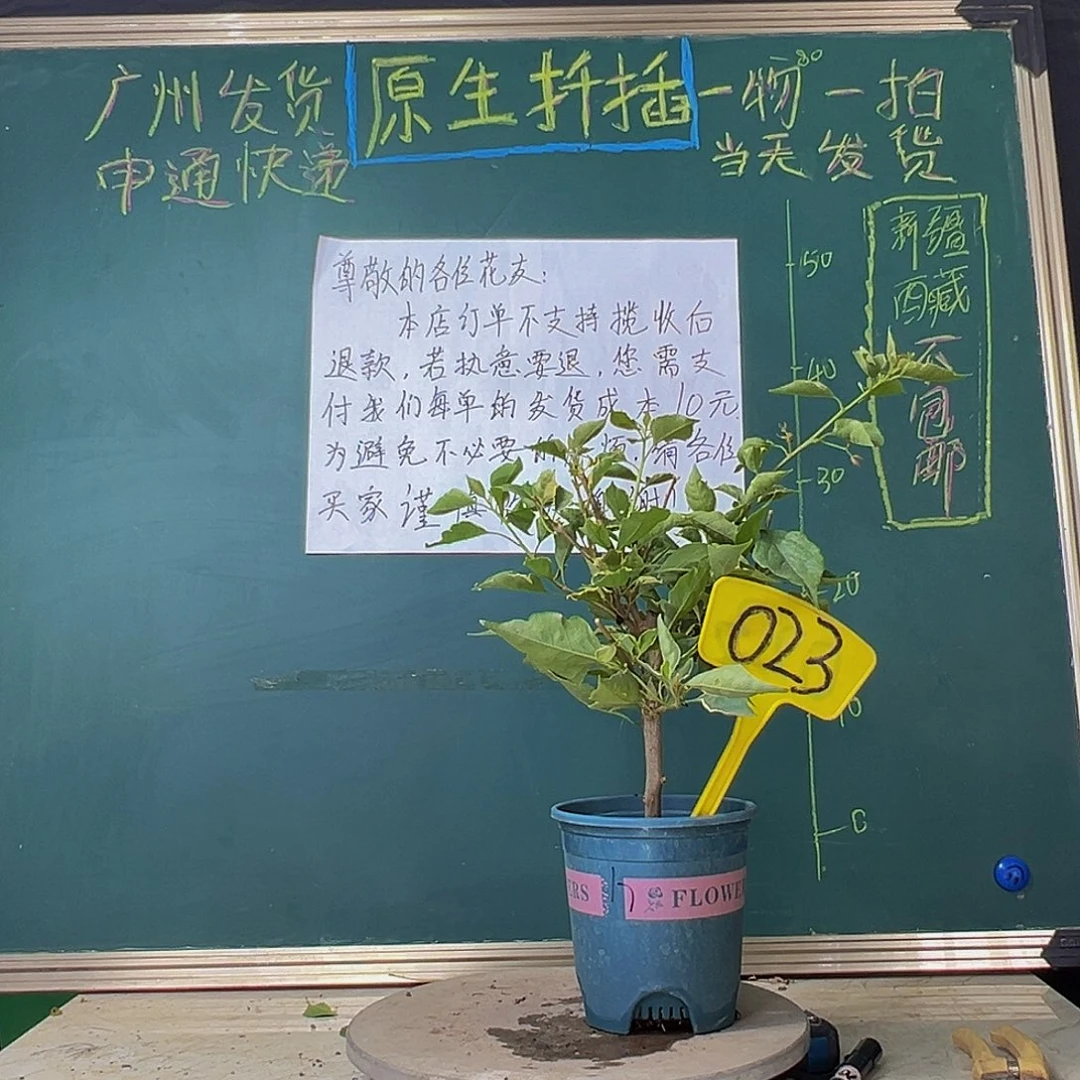 广州发货
原生扦插
一物一拍
80
申通快递
当天发货
新疆
西藏
不
包
邮
50
40
30
20
10
0
尊敬的各位花友：
本店订单不支持揽收后
退款，若执意要退，您需支
付我们每单的发货成本10元
为避免不必要的 烦，请各位
买家谨
023
ERS
FLOWE